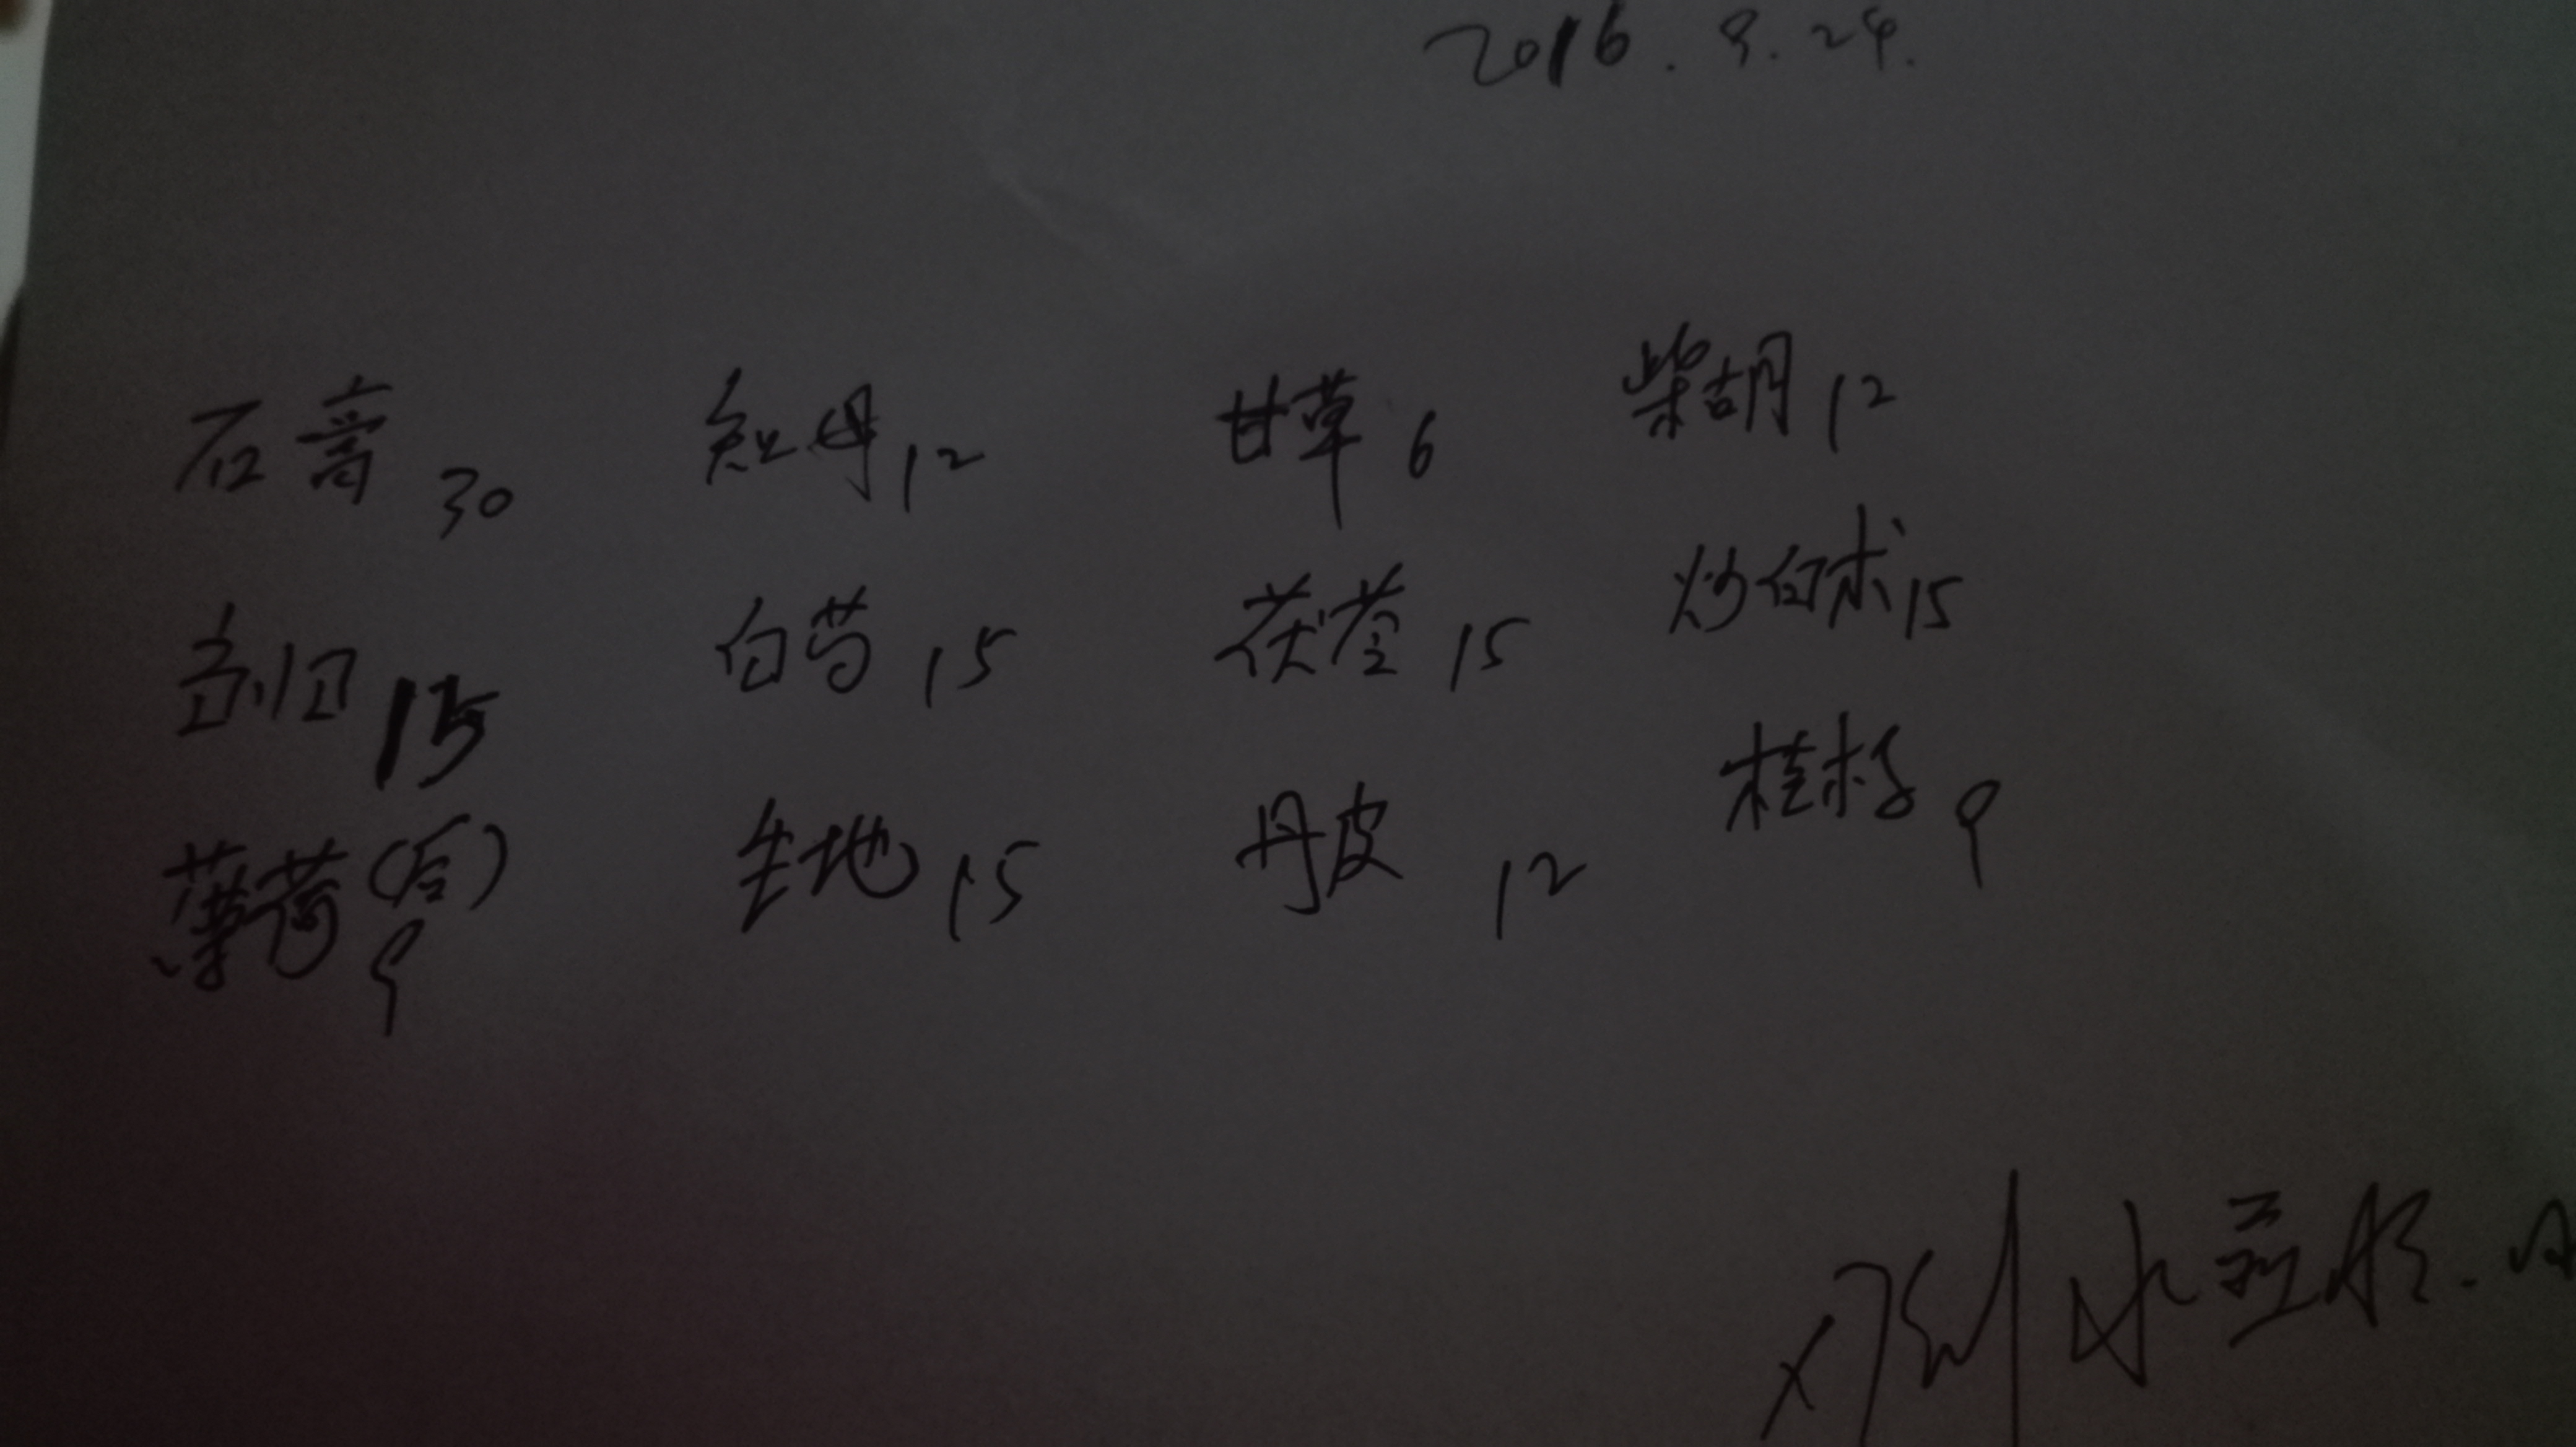 2016.9.24.
石膏30 知母12 甘草6 柴胡12
当归15 白芍15 茯苓15 炒白术15
薄荷(后)9 生地15 丹皮12 桂枝9